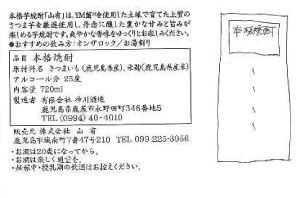 本格芋焼酎「山有」は、YM菌®を使用した土壌で育てた上質の
さつま芋を厳選使用し、丹念に醸した豊かな甘みと旨みが
楽しめる芋焼酎です。爽やかな香味をゆっくりとお楽しみください。
●おすすめの飲み方:オンザロック/お湯割り
品目 本格焼酎
原材料名 さつまいも(鹿児島県産)、米麹(鹿児島県産米)
アルコール分 25度
内容量 720ml
製造者 有限会社 神川酒造
鹿児島県鹿屋市永野田町346番地5
TEL (0994) 40-4010
販売元 株式会社 山有
鹿児島市城南町7番47号 TEL 099-225-3956
・お酒は20歳になってから。
・お酒は楽しく適量を。
・妊娠中・授乳期の飲酒はお控えください。
本格焼酎